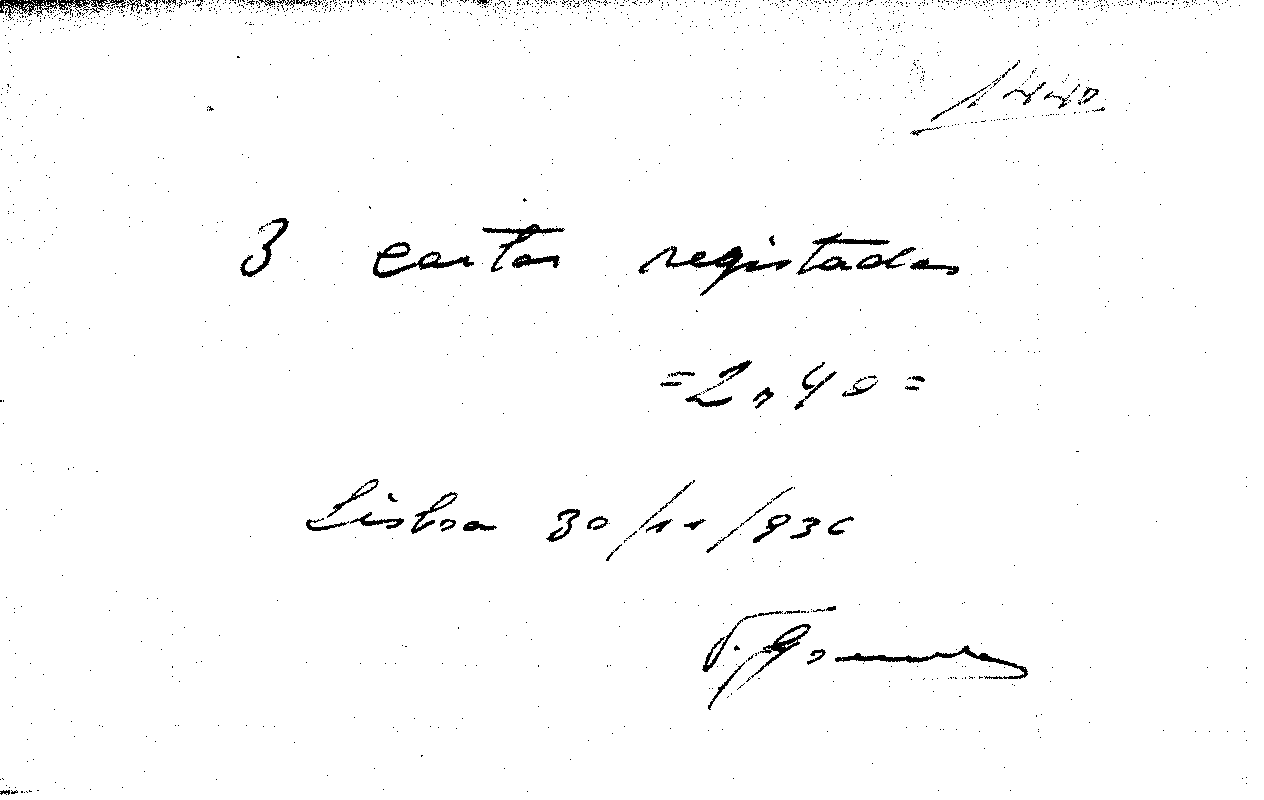 1440
3 cartas registadas
=2,,40=
Lisboa 30/11/936